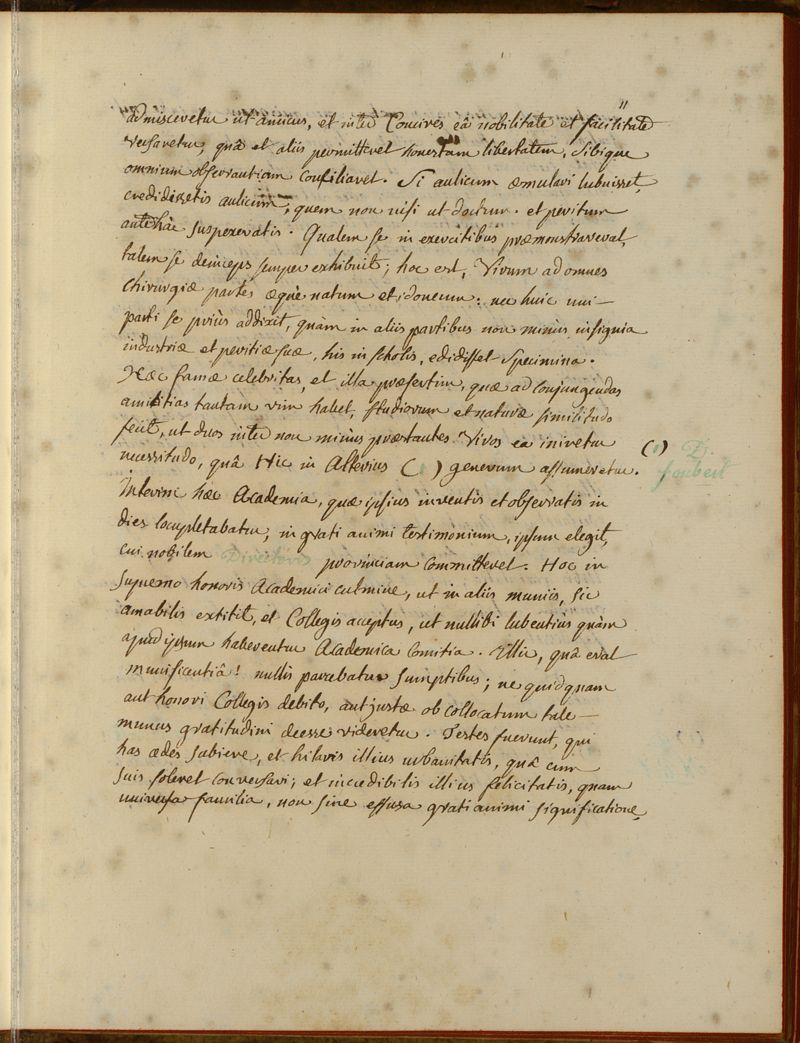 11
admisceretur ut amicus, et inter Concives eâ nobilitate et facilitate
versaretur, quâ et aliis permitteret honestam libertatem, sibique
omnium observantiam conciliaret. Si aulicum æmulari lubuisset,
credidissetis aulicum, quem non nisi ut doctum et peritum
antehâc suspexeratis. Qualem se in exercitibus præmonstraverat,
talem se deinceps semper exhibuit; hoc est, Virum ad omnes
Chirurgiæ partes æquè natum et idoneum: nec huic uni
parti se priùs addixit, quàm in aliis partibus non minùs insignia
industriæ et peritiæ suæ, his in scholis, edidisset specimina.
Hæc famæ celebritas, et illa præsertim, quæ ad conjungendas
amicitias tantam vim habet, studiorum et naturæ similitudo
fecit, ut duos inter non minùs præstantes Viros ea iniretur
necessitudo, quâ Hic in Alterius ( ) generum assumeretur.
( ) D.
Joubert
Interim hæc Academia, quæ ipsius inventis et observatis in
dies locupletabatur, in grati animi testimonium, ipsum elegit,
cui nobilem Directoris provinciam committeret. Hoc in
supremo honoris Academici culmine, ut in aliis muniis, sic
amabilis extitit, et Collegis acceptus, ut nullibi lubentiùs quàm
apud ipsum haberentur Academica Comitia. Illic, quâ erat
munificentiâ! nullis parcebatur sumptibus; ne quidquam
aut honori Collegis debito, aut justæ ob collocatum tale
munus gratitudini deesse videretur. Testes fuerunt, qui
has ædes subiere, et hilaris illius urbanitatis, quâ cum
suis soleret conversari; et incredibilis illius felicitatis, quam
universa familia, non sine effusa grati animi significatione,